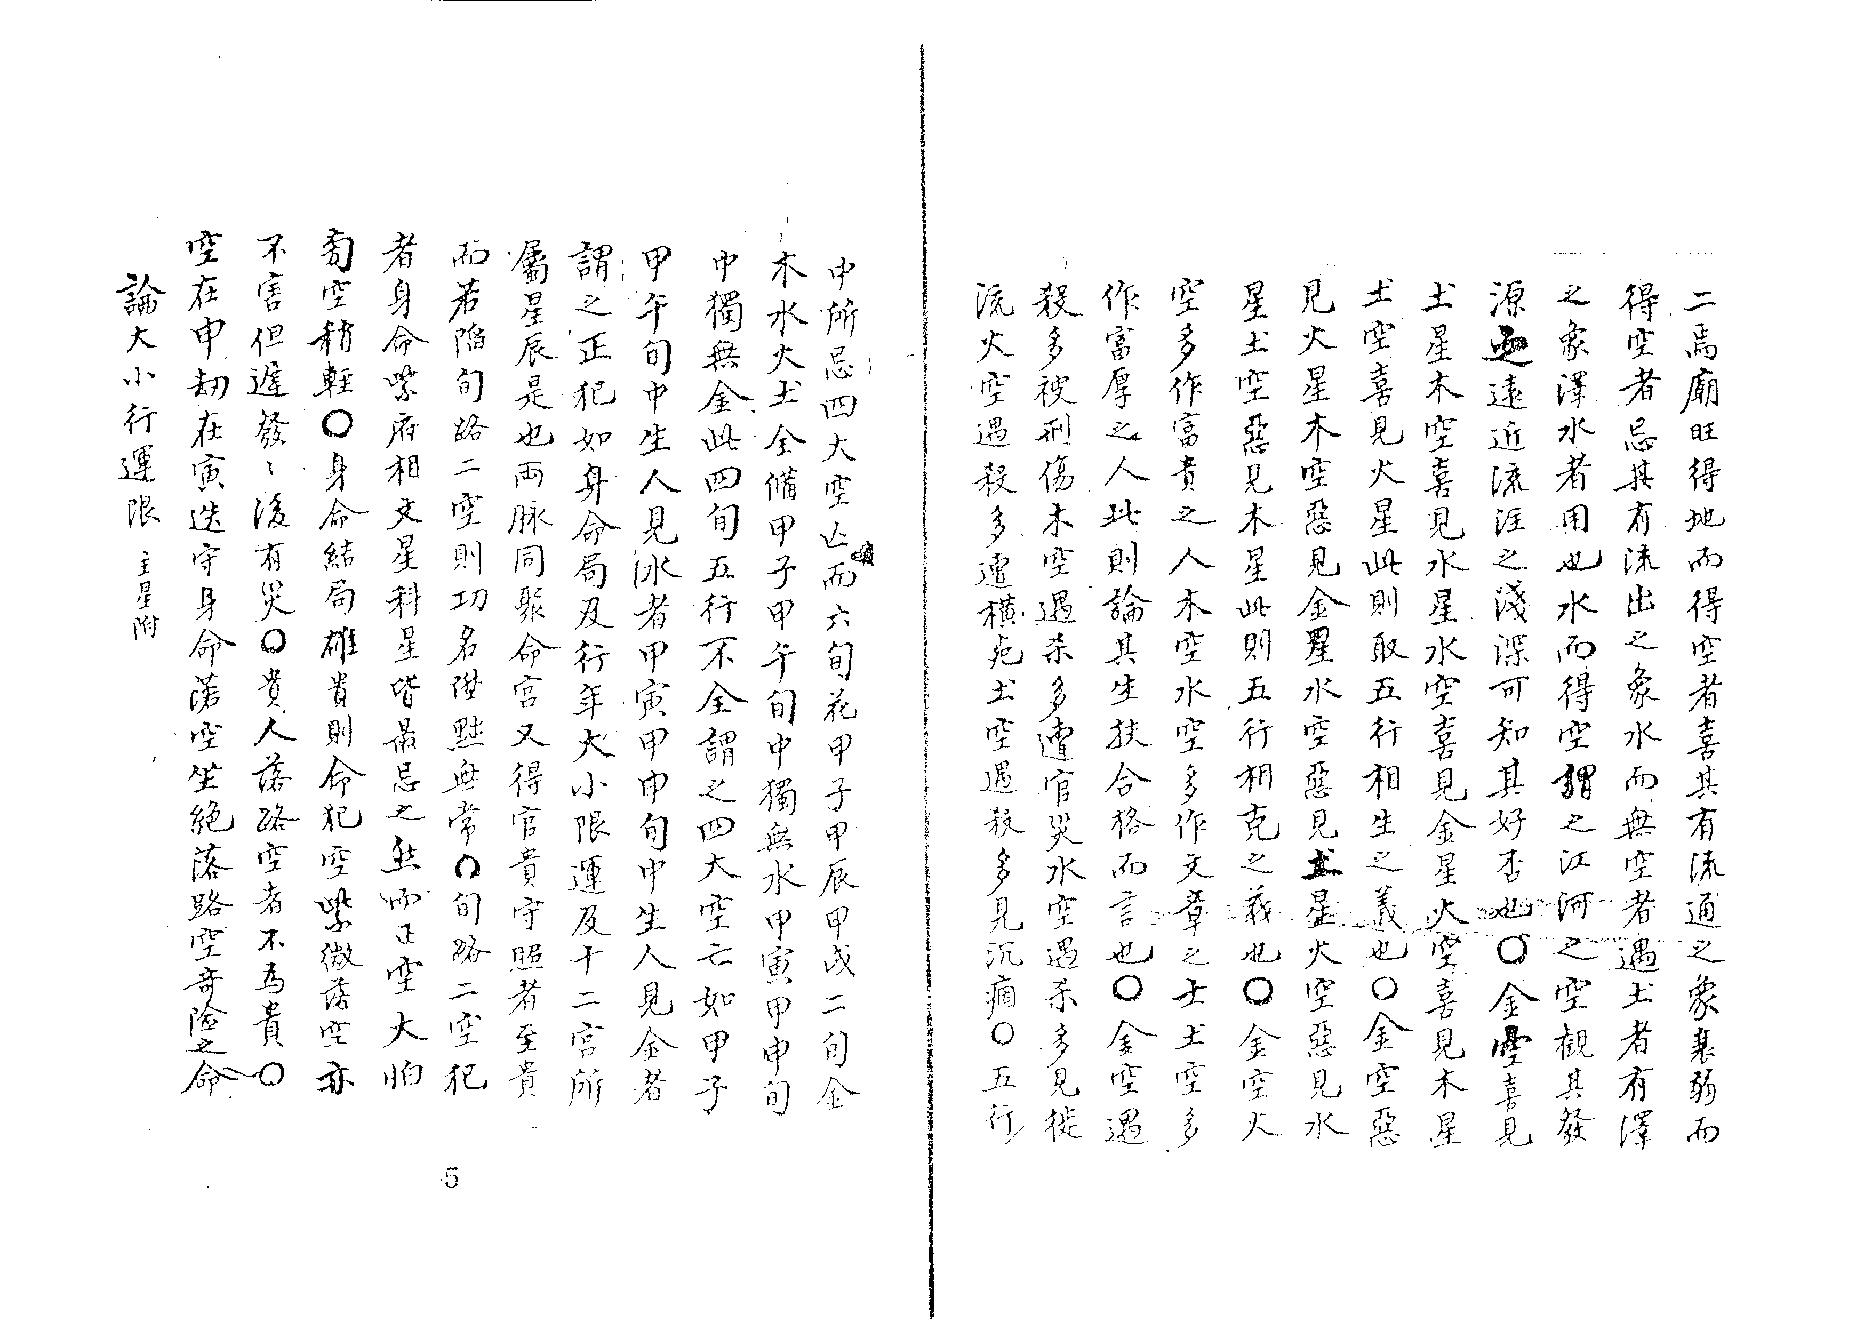 二焉廟旺得地而得空者喜其有流通之象衰弱而
得空者忌其有流出之象水而無空者遇土者有澤
之象澤水者用也水而得空謂之江河之空觀其發
源遠近流注之淺深可知其好否也〇金空喜見
土星木空喜見水星水空喜見金星火空喜見木星
土空喜見火星此則取五行相生之義也〇金空惡
見火星木空惡見金星水空惡見土星火空惡見水
星土空惡見木星此則五行相克之義也〇金空火
空多作富貴之人木空水空多作文章之士土空多
作富厚之人此則論其生扶合格而言也〇金空遇
殺多被刑傷木空遇杀多遭官災水空遇杀多見徙
流火空遇殺多遭橫死土空遇殺多見沉痼〇五行
中所忌四大空亡而六旬花甲子甲辰甲戌二旬金
木水火土全備甲子甲午旬中獨無水甲寅甲申旬
中獨無金此四旬五行不全謂之四大空亡如甲子
甲午旬中生人見水者甲寅甲申旬中生人見金者
謂之正犯如身命局及行年大小限運及十二宮所
屬星辰是也兩脉同聚命宮又得官貴守照者至貴
而若陷旬路二空則功名陞黜無常〇旬路二空犯
者身命紫府相文星科星皆最忌之然而正空大怕
旬空稍輕〇身命結局雄貴則命犯空紫微落空亦
不害但遲發〻後有災〇貴人落路空者不為貴〇
空在申劫在寅迭守身命落空坐絕落路空奇險之命
論大小行運限 主星附
5